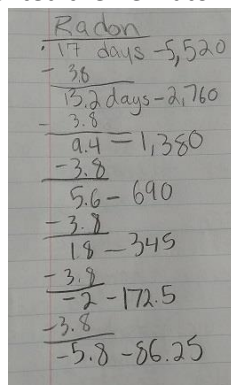 Radon
17 days - 5,520
- 3.8
13.2 days - 2,760
- 3.8
9.4 - 1,380
- 3.8
5.6 - 690
- 3.8
1.8 - 345
- 3.8
-2 - 172.5
- 3.8
-5.8 - 86.25